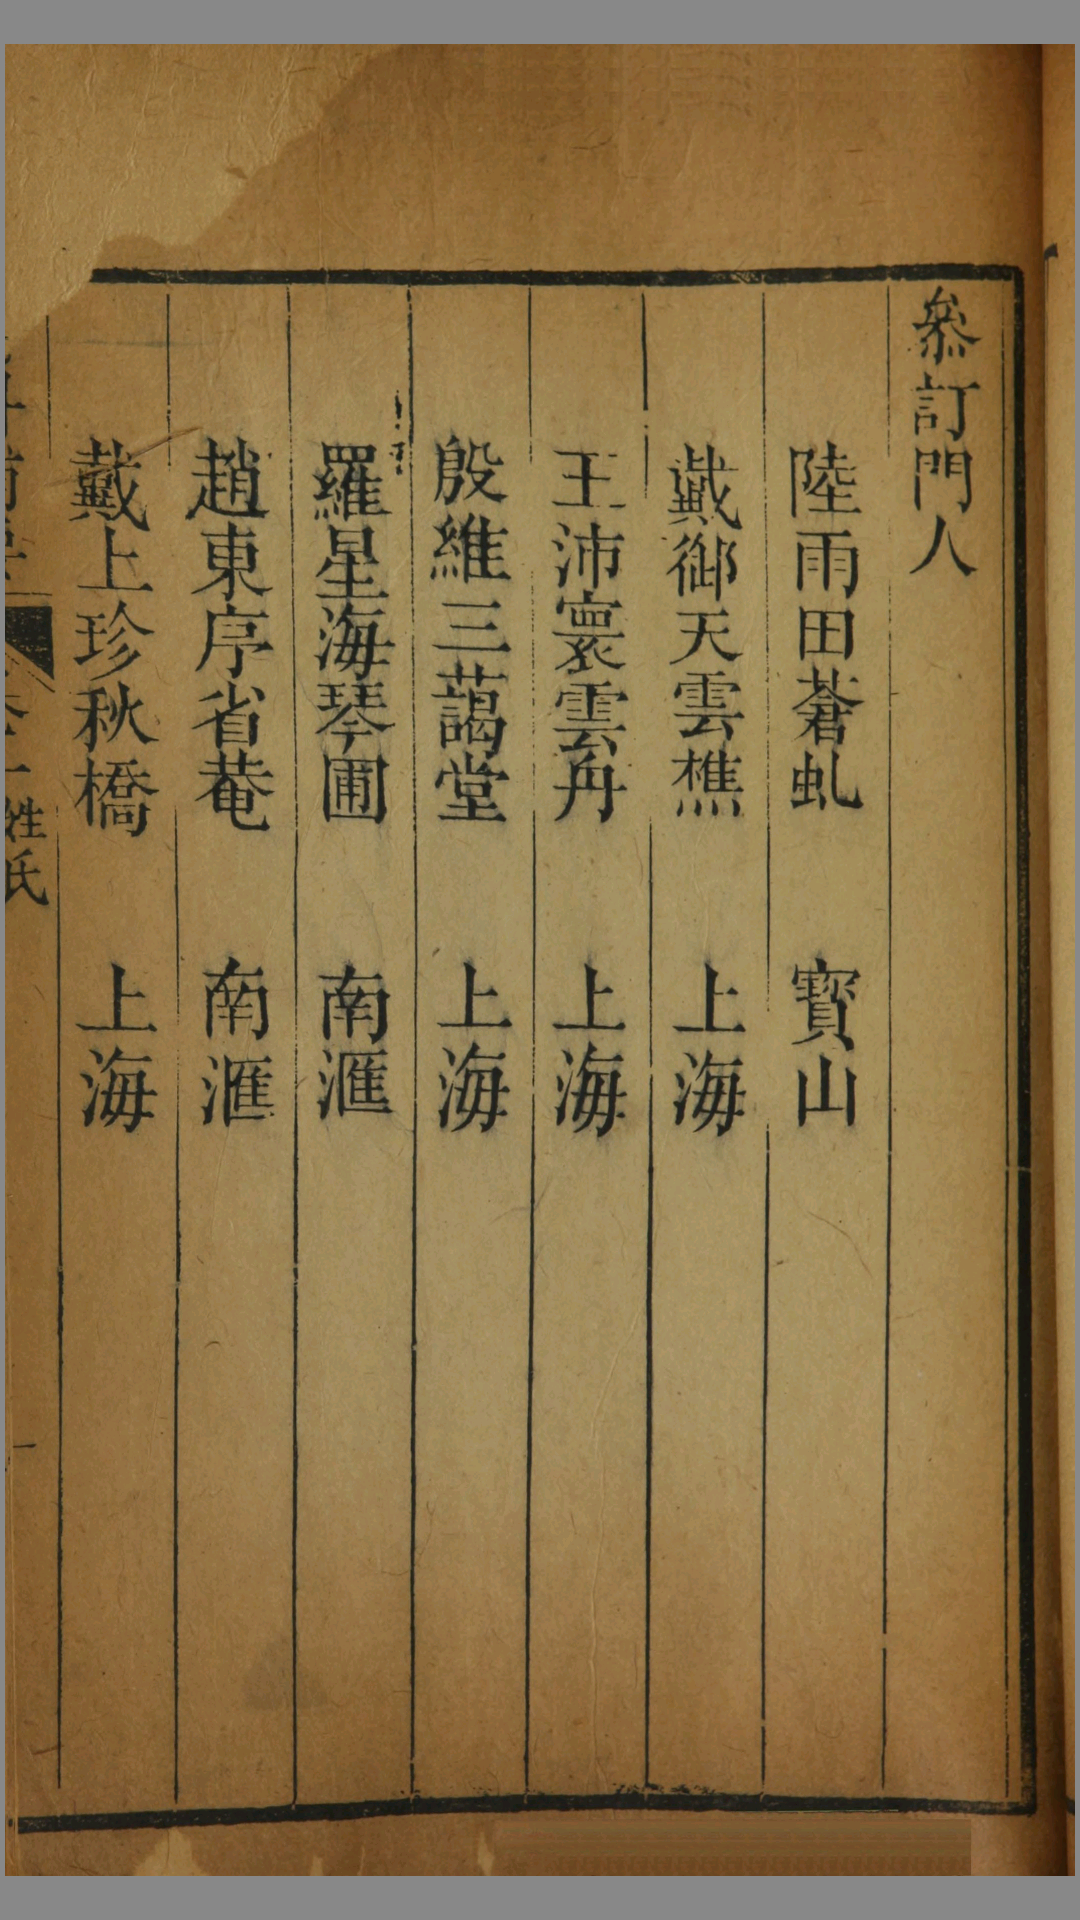 參訂門人
陸雨田蒼虬 寳山
戴御天雲樵 上海
王沛寰雲舟 上海
殷維三藹堂 上海
羅星海琴圃 南滙
趙東序省菴 南滙
戴上珍秋橋 上海
姓氏